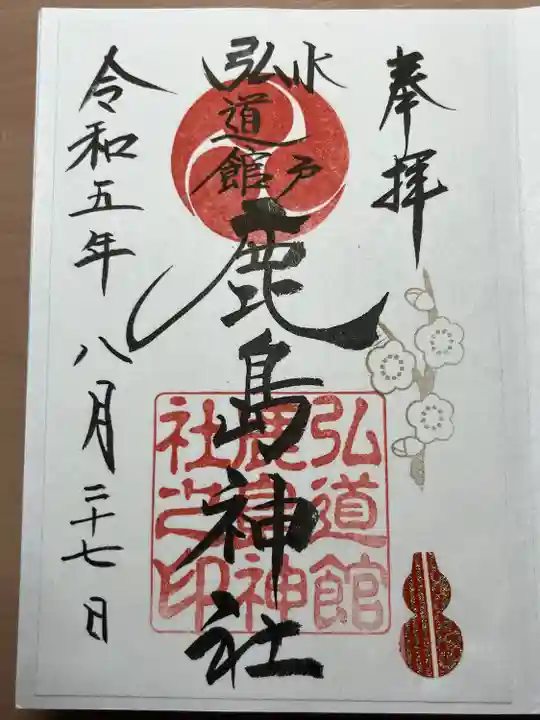 奉拝
水戸
弘道館
鹿島神社
弘道館
鹿島神
社之印
令和五年八月二十七日